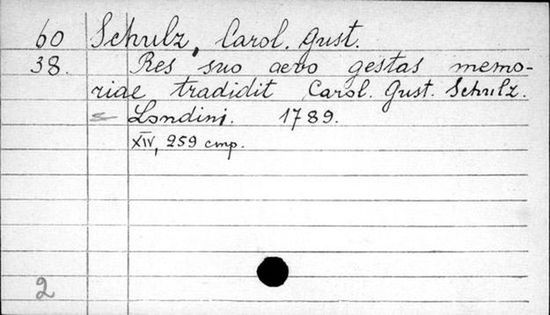 60 Schulz, Carol. Gust.
38. Res suo aevo gestas memo-
riae tradidit Carol. Gust. Schulz.
Londini. 1789.
XIV, 259 cmp.
2